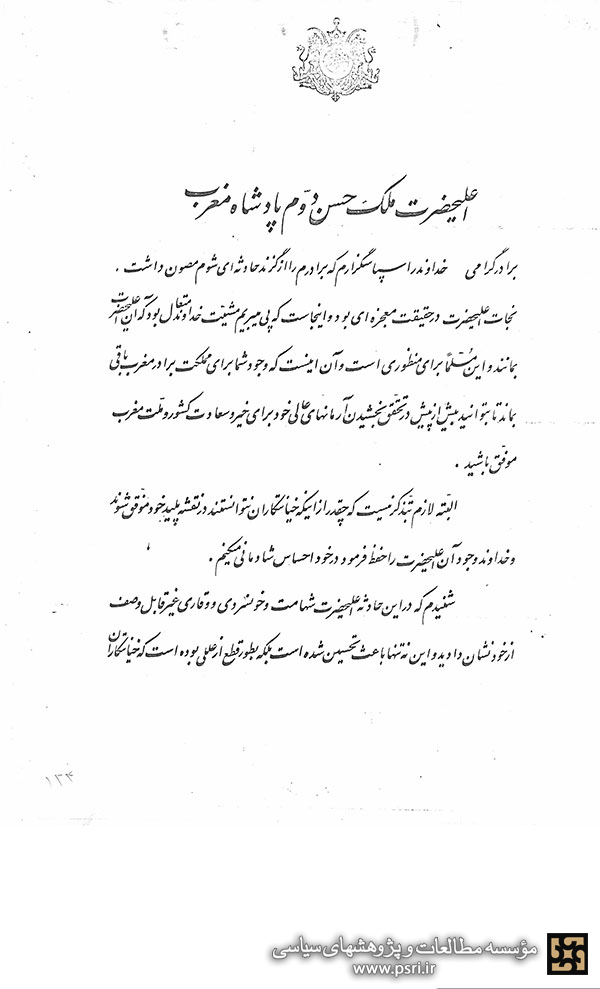 اعلیحضرت ملک حسن دوم پادشاه مغرب
برادر گرامی خداوند را سپاسگزارم که برادرم را از گزند حادثه‌ای شوم مصون داشت .
نجات اعلیحضرت در حقیقت معجزه‌ای بود و اینجاست که پی میبریم مشیّت خداوند متعال بود که آن اعلیحضرت
بمانند و این مسلّماً برای منظوری است و آن اینست که وجود شما برای مملکت برادر مغرب باقی
بماند تا بتوانید بیش از پیش در تحقّق بخشیدن آرمانهای عالی خود برای خیر و سعادت کشور و ملّت مغرب
موفّق باشید .
البتّه لازم بتذکر نیست که چقدر از اینکه خیانتکاران نتوانستند در نقشه پلید خود موفّق شوند
و خداوند وجود آن اعلیحضرت را حفظ فرمود در خود احساس شادمانی میکنم .
شنیدم که در این حادثه اعلیحضرت شهامت و خونسردی و وقاری غیر قابل وصف
از خود نشان دادید و این نه تنها باعث تحسین شده است بلکه بطور قطع از عللی بوده است که خیانتکاران
۱۳۴
مؤسسه مطالعات و پژوهشهای سیاسی
www.psri.ir